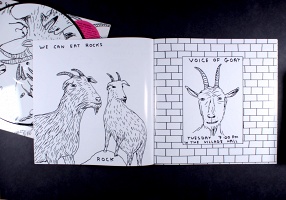 WE CAN EAT ROCKS
ROCK
VOICE OF GOAT
TUESDAY 7:00 PM
@ THE VILLAGE HALL